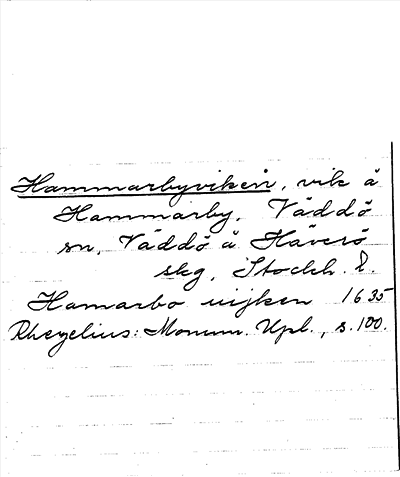 Hammarbyviken, vik å
Hammarby, Väddö
sn, Väddö å Häverö
skg, Stockh. l.
Hamarbo uijken 1635
Rhezelius: Monum. Upl., s. 100.